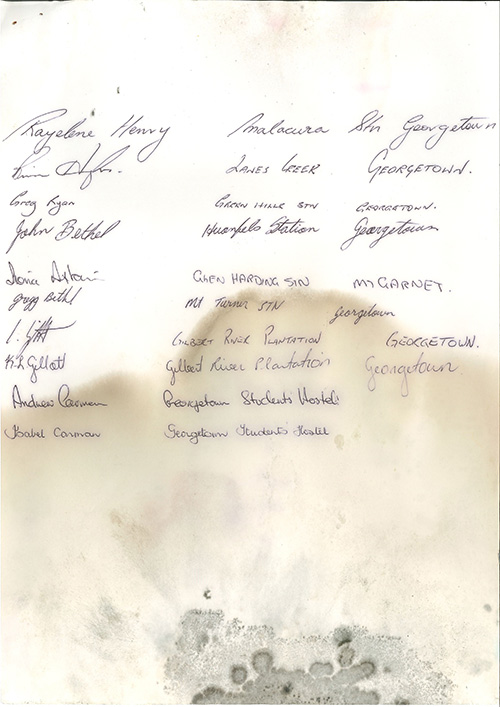 Rayelene Henry Malacura Stn Georgetown
LANES CREEK GEORGETOWN.
Greg Ryan GREEN HILLS STN GEORGETOWN.
John Bethel Huonfels Station Georgetown
GLEN HARDING STN MT GARNET.
Gregg Bethel Mt Turner STN Georgetown
GILBERT RIVER PLANTATION GEORGETOWN.
K.L Gillott Gilbert River Plantation Georgetown
Andrew Carman Georgetown Students Hostel
Isabel Carman Georgetown Students' Hostel